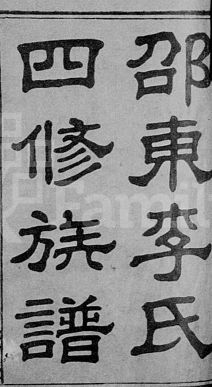 邵東李氏
四修族譜